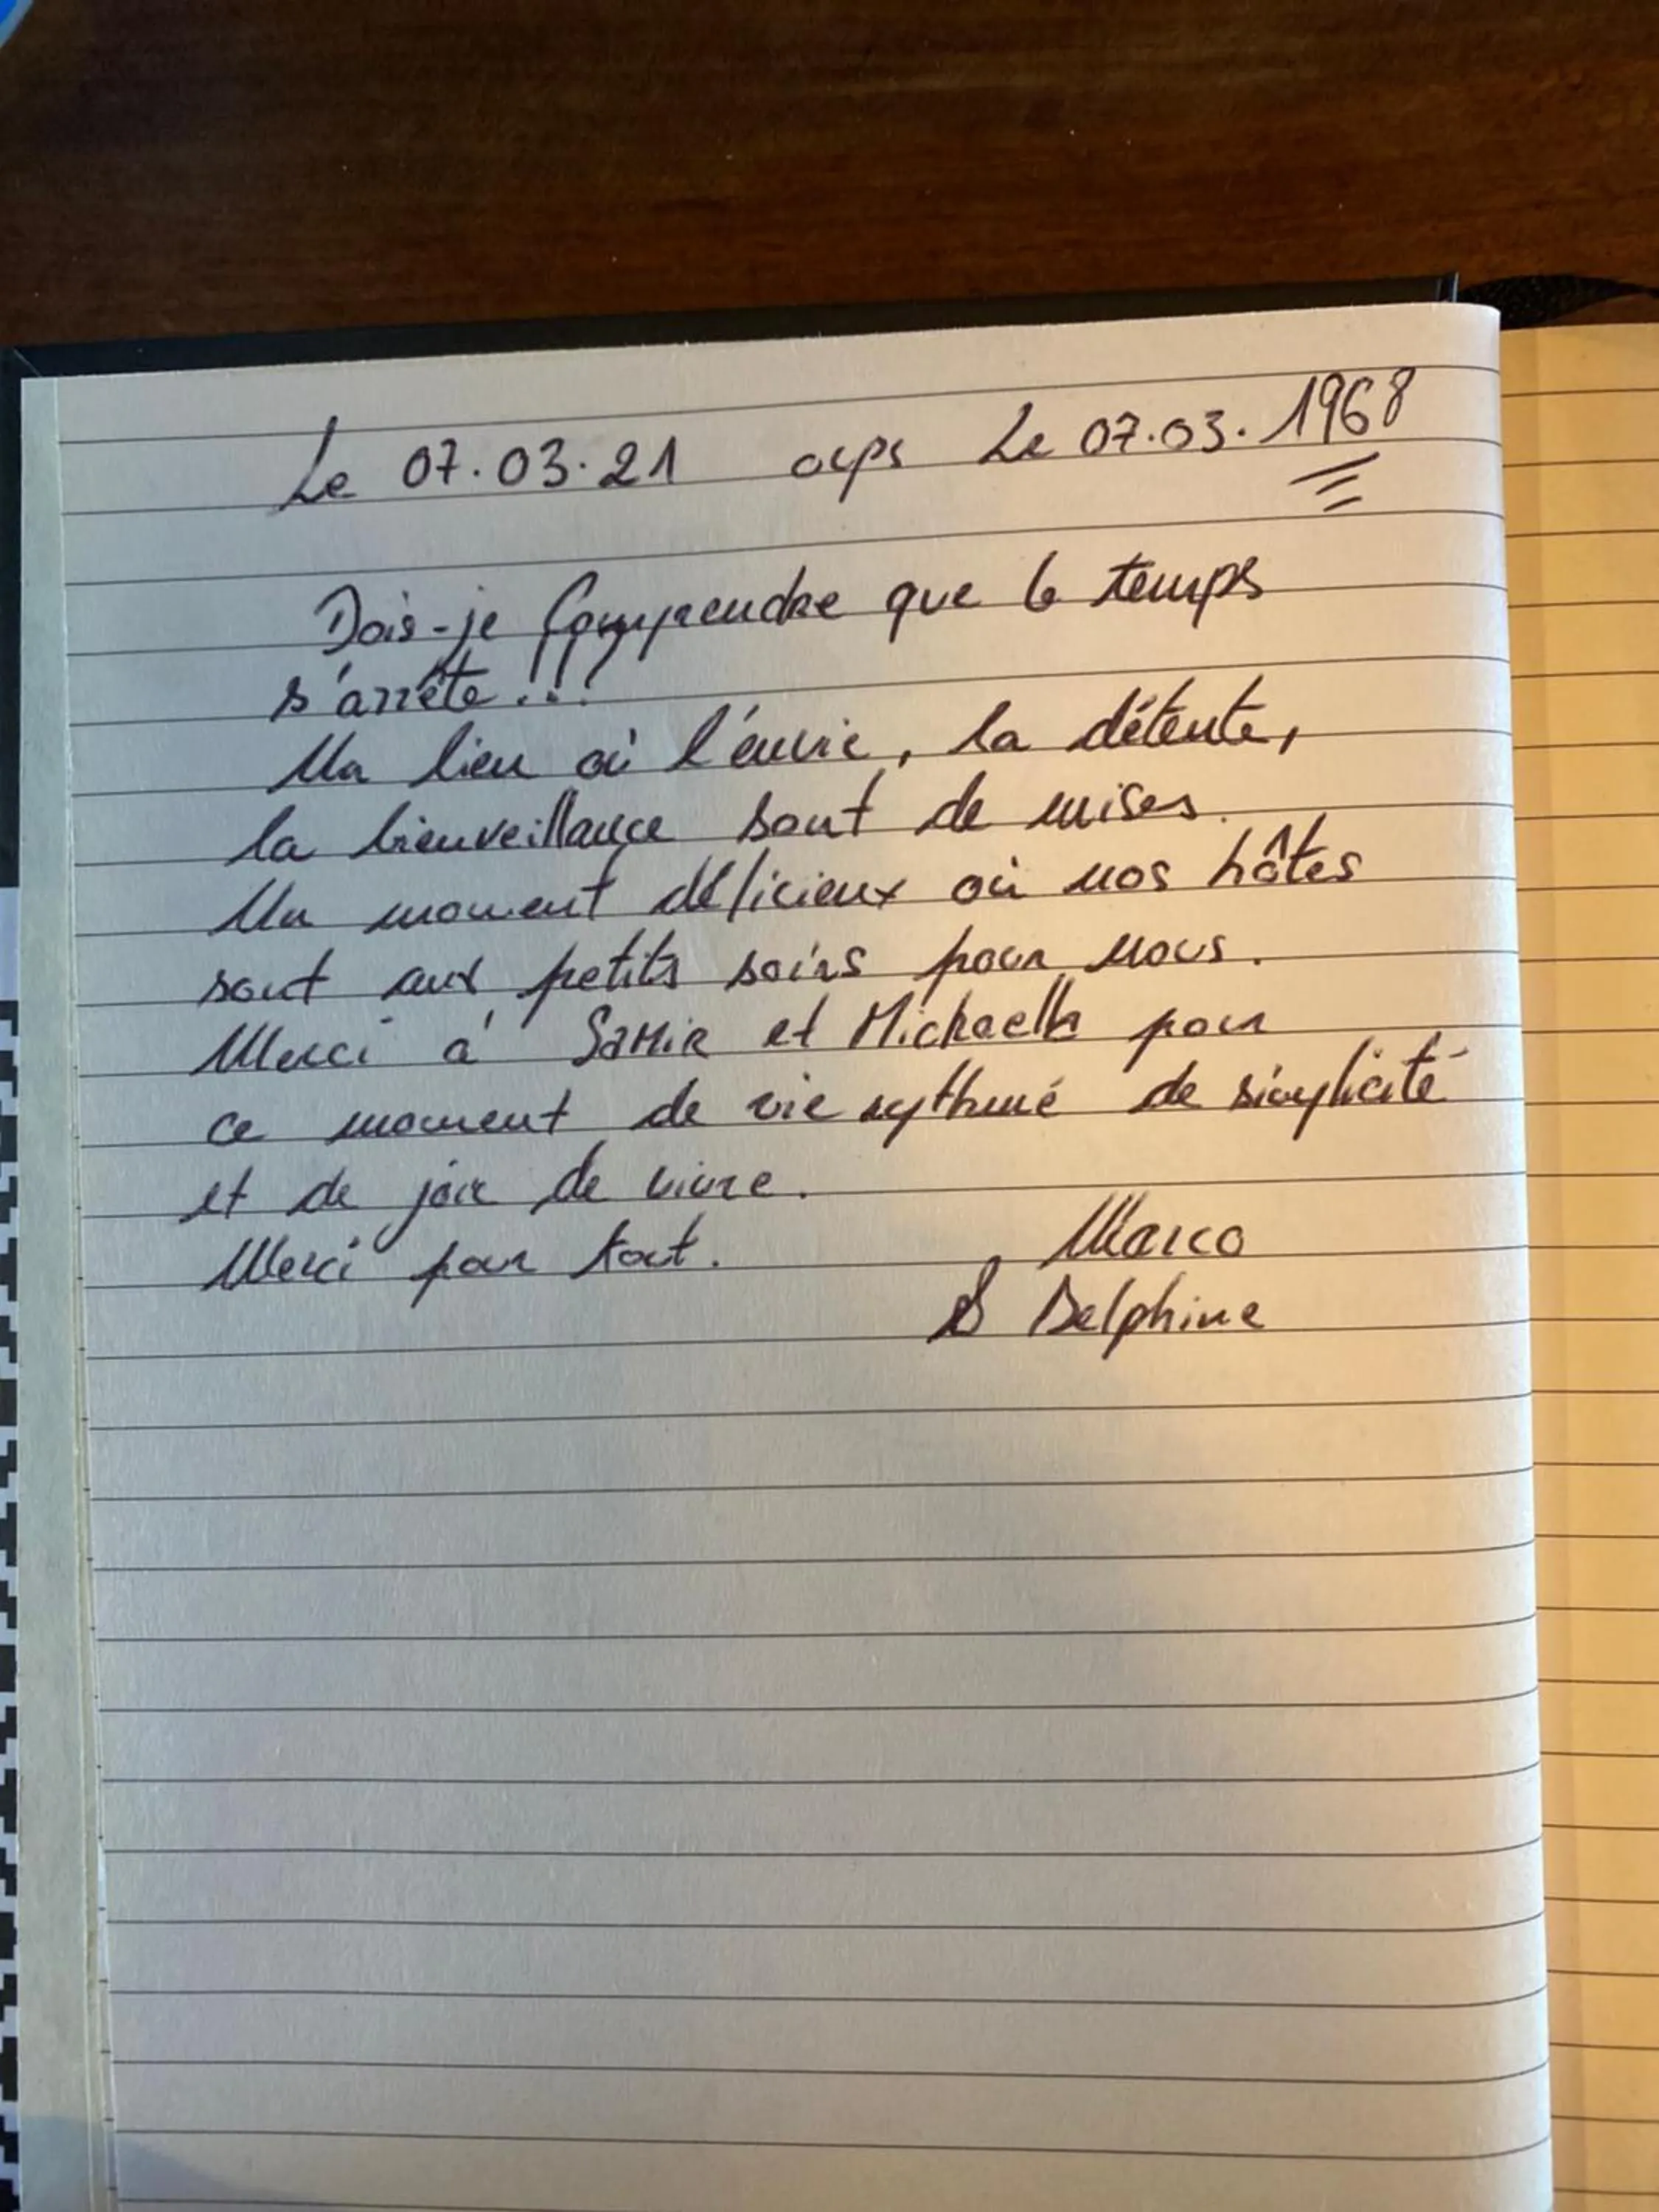 Le 07.03.21 oups Le 07.03.1968
Dois-je Comprendre que le temps
s'arrête !!!
Un lieu où l'envie, la détente,
la bienveillance sont de mises.
Un moment délicieux où nos hôtes
sont aux petits soins pour nous.
Merci à Samir et Michaella pour
ce moment de vie rythmé de simplicité
et de joie de vivre.
Merci pour tout.
Marco
& Delphine